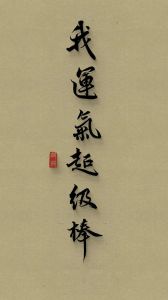 我運氣超级棒